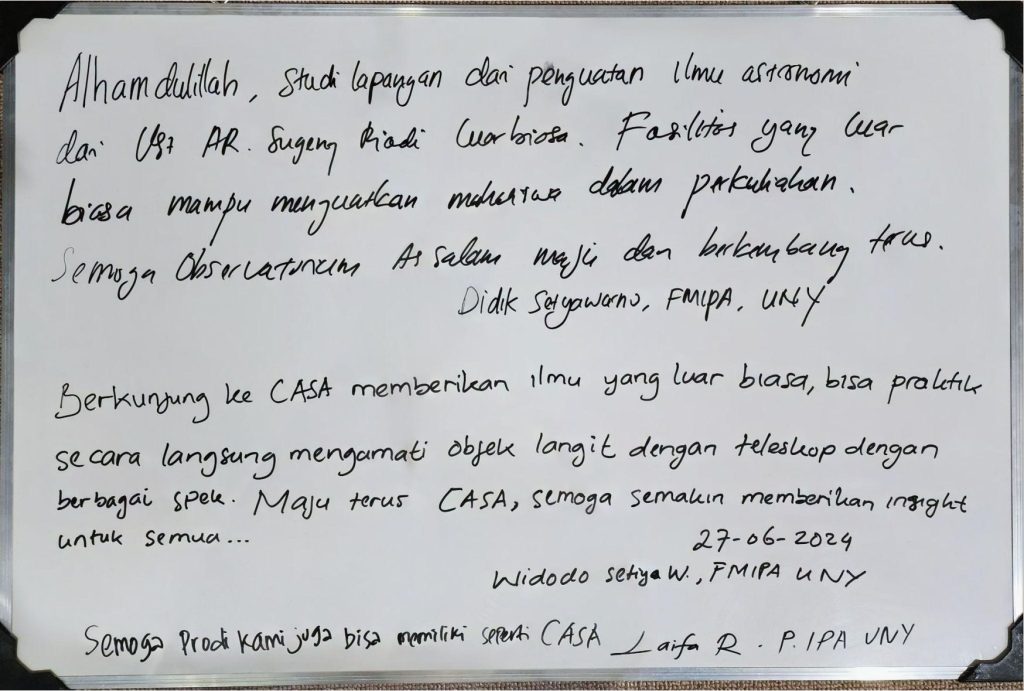 Alhamdulillah, Studi lapangan dari penguatan ilmu astronomi
dari Ust AR. Sugeng Riadi luar biasa. Fasilitas yang luar
biasa mampu menguatkan mahasiswa dalam perkuliahan.
Semoga Observatorium Assalam maju dan berkembang terus.
Didik Setyawarno, FMIPA, UNY
Berkunjung ke CASA memberikan ilmu yang luar biasa, bisa praktik
secara langsung mengamati objek langit dengan teleskop dengan
berbagai spek. Maju terus CASA, semoga semakin memberikan insight
untuk semua...
27-06-2024
Widodo Setiya W., FMIPA UNY
Semoga Prodi kami juga bisa memiliki seperti CASA Laifa R. P. IPA UNY